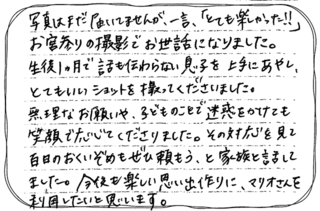 写真はまだ届いてませんが、一言、「とても楽しかった!!」
お宮参りの撮影でお世話になりました。
生後1ヵ月で話も伝わらない息子を上手にあやし、
とてもいいショットを撮ってくださいました。
無理なお願いや、子どものことで迷惑をかけても
笑顔で応じてくださりました。その対応を見て
百日のおくいぞめもぜひ頼もう、と家族と話して
ました。今後も楽しい思い出作りに、マリオさんを
利用したいと思います。